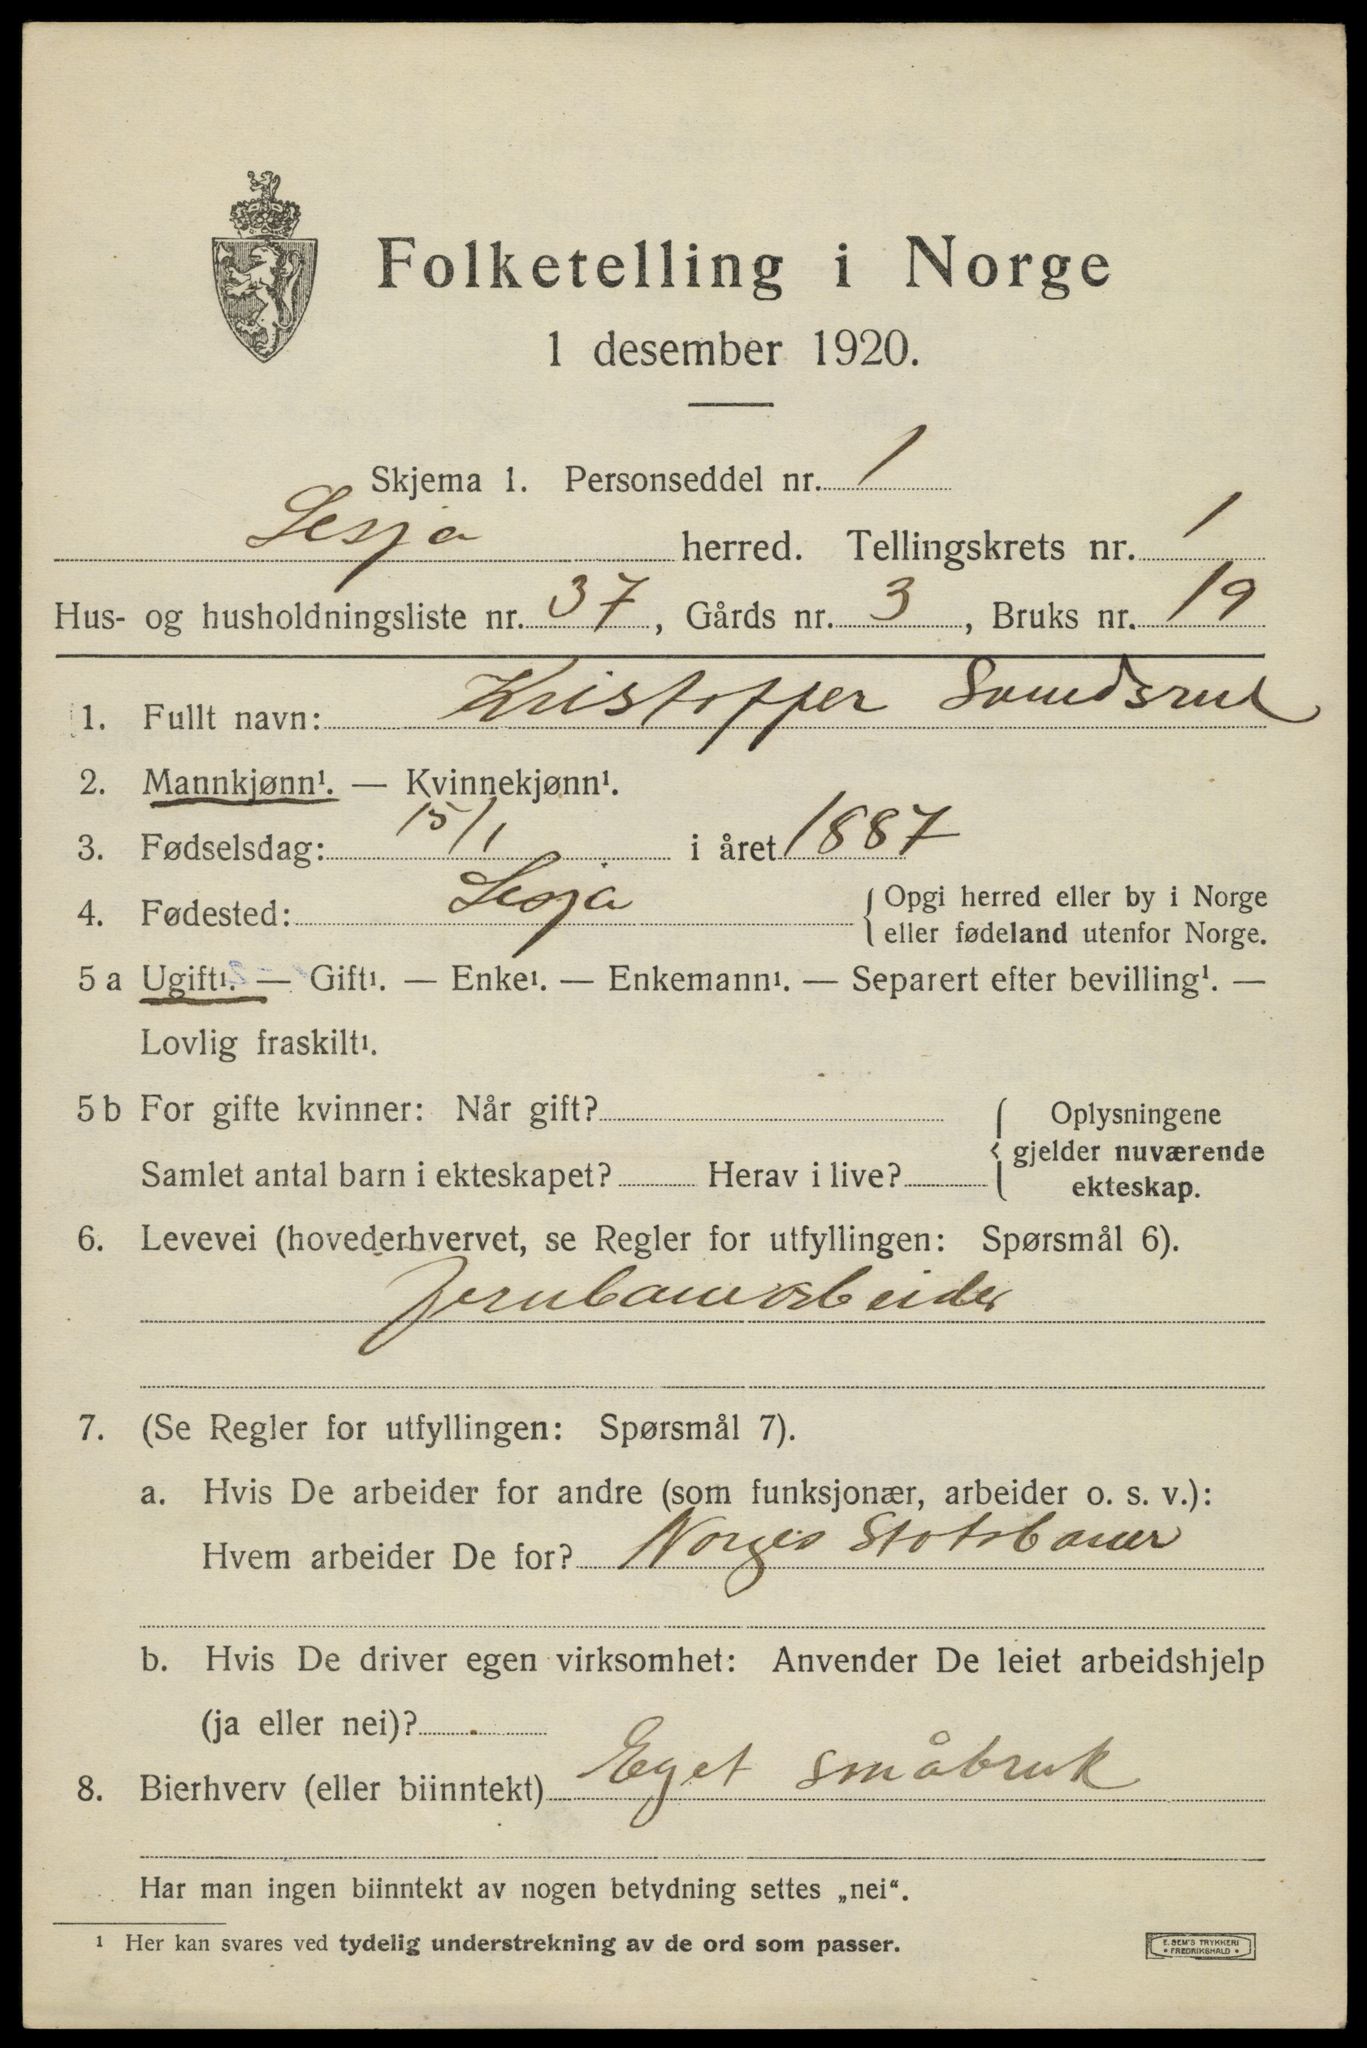 Folketelling i Norge
1 desember 1920.
Skjema 1. Personseddel nr. 1
Lesja herred. Tellingskrets nr. 1
Hus- og husholdningsliste nr. 37, Gårds nr. 3, Bruks nr. 19
1. Fullt navn: Kristoffer
2. Mannkjønn¹. — Kvinnekjønn¹.
3. Fødselsdag: 15/1 i året 1887
4. Fødested: Lesja { Opgi herred eller by i Norge
eller fødeland utenfor Norge.
5 a Ugift¹. — Gift¹. — Enke¹. — Enkemann¹. — Separert efter bevilling¹. —
Lovlig fraskilt¹.
5 b For gifte kvinner: Når gift? { Oplysningene
gjelder nuværende
Samlet antal barn i ekteskapet? Herav i live? ekteskap.
6. Levevei (hovederhvervet, se Regler for utfyllingen: Spørsmål 6).
Jernbanearbeider
7. (Se Regler for utfyllingen: Spørsmål 7).
a. Hvis De arbeider for andre (som funksjonær, arbeider o. s. v.):
Hvem arbeider De for? Norges Statsbaner
b. Hvis De driver egen virksomhet: Anvender De leiet arbeidshjelp
(ja eller nei)?
8. Bierhverv (eller biinntekt) Eget småbruk
Har man ingen biinntekt av nogen betydning settes „nei“.
¹ Her kan svares ved tydelig understrekning av de ord som passer.
E. SEM'S TRYKKERI
• FREDRIKSHALD •